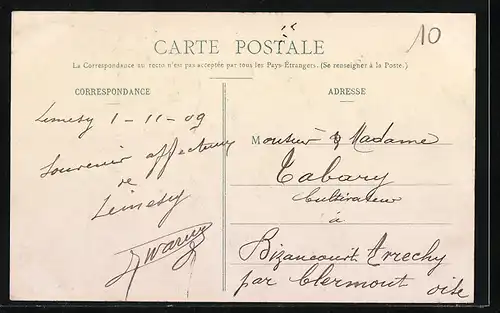 10
CARTE POSTALE
La Correspondance au recto n'est pas acceptée par tous les Pays-Étrangers. (Se renseigner à la Poste.)
CORRESPONDANCE
Limesy 1-11-09
Souvenir affectueux
de
Limesy
ADRESSE
Monsieur & Madame
Tabary
Cultivateur
à
Bizancourt Arrechy
par Clermont oise